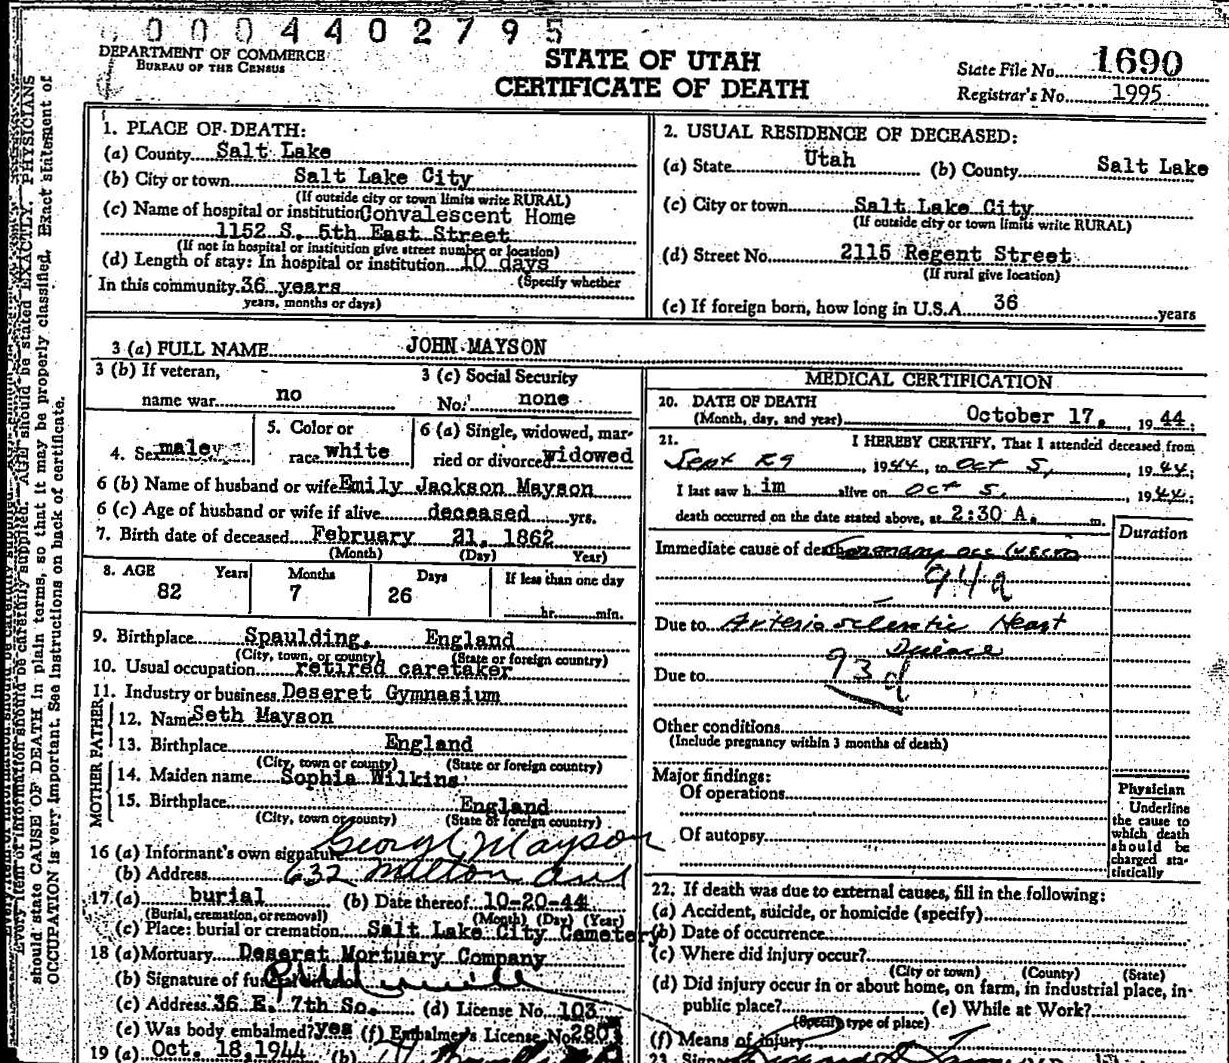 0004402795
DEPARTMENT OF COMMERCE
BUREAU OF THE CENSUS
STATE OF UTAH
CERTIFICATE OF DEATH
State File No. 1690
Registrar's No. 1995
1. PLACE OF DEATH:
(a) County Salt Lake
(b) City or town Salt Lake City
(If outside city or town limits write RURAL)
(c) Name of hospital or institution Convalescent Home
1152 S. 5th East Street
(If not in hospital or institution give street number or location)
(d) Length of stay: In hospital or institution 10 days
(Specify whether
In this community 36 years
years, months or days)
2. USUAL RESIDENCE OF DECEASED:
(a) State Utah (b) County Salt Lake
(c) City or town Salt Lake City
(If outside city or town limits write RURAL)
(d) Street No. 2115 Regent Street
(If rural give location)
(e) If foreign born, how long in U.S.A. 36 years
3 (a) FULL NAME JOHN MAYSON
3 (b) If veteran,
name war no
3 (c) Social Security
No. none
4. Sex male
5. Color or
race white
6 (a) Single, widowed, mar-
ried or divorced widowed
6 (b) Name of husband or wife Emily Jackson Mayson
6 (c) Age of husband or wife if alive deceased yrs.
7. Birth date of deceased February 21, 1862
(Month) (Day) Year)
8. AGE Years Months Days If less than one day
82 7 26 hr. min.
9. Birthplace Spaulding, England
(City, town, or county) (State or foreign country)
10. Usual occupation retired caretaker
11. Industry or business Deseret Gymnasium
FATHER
12. Name Seth Mayson
13. Birthplace England
(City, town or county) (State or foreign country)
MOTHER
14. Maiden name Sophia Wilkins
15. Birthplace England
(City, town or county) (State or foreign country)
16 (a) Informant's own signature George Mayson
(b) Address 632 Milton Ave
17. (a) burial (b) Date thereof 10-20-44
(Burial, cremation, or removal) (Month) (Day) (Year)
(c) Place: burial or cremation Salt Lake City Cemetery
18 (a) Mortuary Deseret Mortuary Company
(b) Signature of
(c) Address 36 E. 7th So. (d) License No. 103
(e) Was body embalmed? yes (f) Embalmer's License No. 280
19 (a) Oct. 18, 1944 (b)
MEDICAL CERTIFICATION
20. DATE OF DEATH
(Month, day, and year) October 17, 1944;
21. I HEREBY CERTIFY, That I attended deceased from
Sept 29, 1944, to Oct 5, 1944;
I last saw h im alive on Oct 5, 1944;
death occurred on the date stated above, at 2:30 A. m.
Duration
Immediate cause of death Coronary occlusion
94a
Due to Arteriosclerotic Heart
Disease
Due to 93d
Other conditions
(Include pregnancy within 3 months of death)
Major findings:
Of operations
Of autopsy
Physician
Underline
the cause to
which death
should be
charged sta-
tistically
22. If death was due to external causes, fill in the following:
(a) Accident, suicide, or homicide (specify)
(b) Date of occurrence
(c) Where did injury occur?
(City or town) (County) (State)
(d) Did injury occur in or about home, on farm, in industrial place, in
public place? (e) While at Work?
(Specify type of place)
(f) Means of injury
23.
should be carefully supplied. AGE should be stated EXACTLY. PHYSICIANS
should state CAUSE OF DEATH in plain terms, so that it may be properly classified. Exact statement of
OCCUPATION is very important. See instructions on back of certificate.